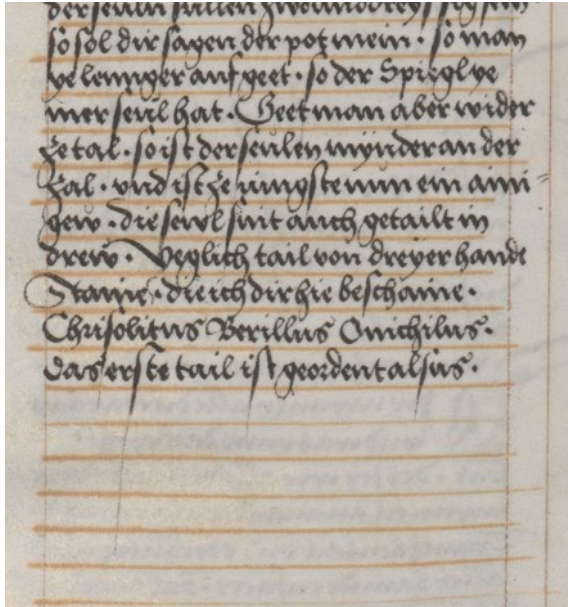 der seuln sullen zwenundreyssig sein
so sol dir sagen der pot mein · so man
ye lennger auf geet · so der Spiegl ye
mer seul hat · Geet man aber wider
ze tal · so ist der seulen mynder an der
Zal · vnd ist ze iungste nun ein aini
gew · die sewl sint auch getailt in
drew · Yeglich tail von dreyer hande
Staine · die ich dir hie beschaine ·
Chrisolitus Berillus Onichilus ·
das erste tail ist geordent alsus ·